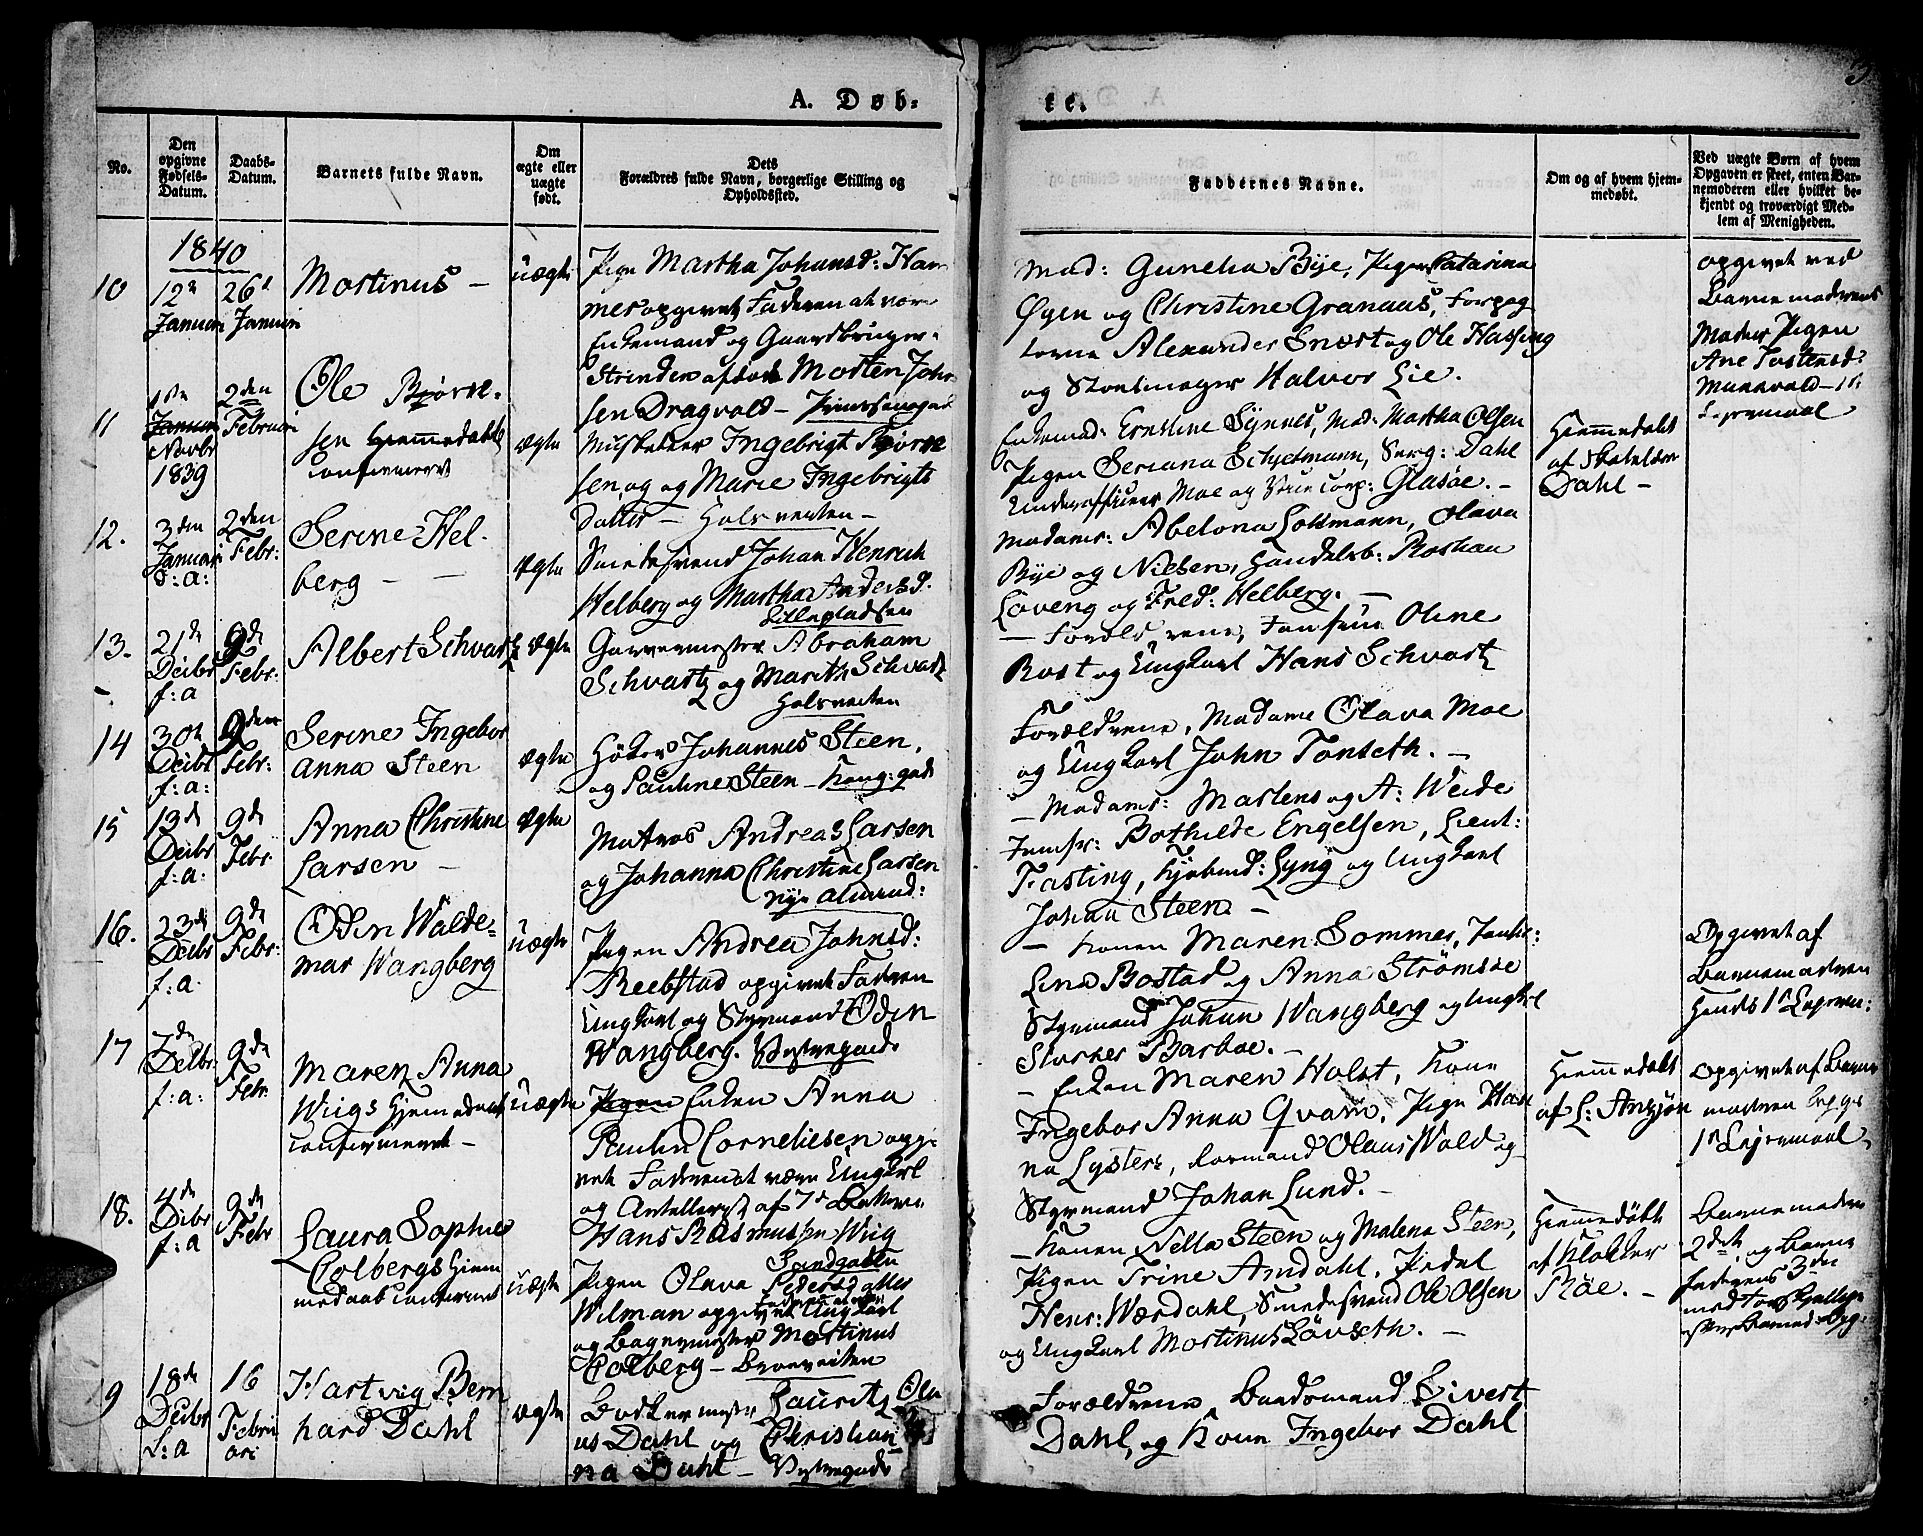 A. Døb-
te.
No.
Den opgivne Fødsels-Datum.
Daabs-Datum.
Barnets fulde Navn.
Om ægte eller uægte født.
Dets Forældres fulde Navn, borgerlige Stilling og Opholdssted.
Faddernes Navne.
Om og af hvem hjem-medøbt.
Ved uægte Børn af hvem Opgaven er skeet, enten Bar-nemoderen eller hvilket be-kjendt og troværdigt Med-lem af Menigheden.
1840
10
12te Januari
26de Januari
Mortinus –
uægte
Pigen Martha Johansd: Ham
mer opgivet Faderen at være
Enkemand og Gaardbruger
Strinden afdøde Morten John
sen Dragvold –
Mad: Gunelia Bye, Pigen Catarina
Øyen og Christine Granaas,
Alexander Snøst og Ole Hassing
og Halvor Lie.
opgivet ved
Barnemoderens
Moder Pigen
Ane Tostensd:
11
1ste Januari Novbr 1839
2den Februari
Ole Bjørn-
sen Hjemmedaab
confirmeret
ægte
Musketeer Ingebrigt Bjørn
sen og og Marie Ingebrigts
Datter – Halsveiten –
Enkemad: Ernstine Synnes, Mad: Martha Olsen
Pigen Seriana Schjetmann, Serg: Dahl
Underofficeer Moe og Vice corp: Glasøe. –
Hjemmedøbt
af
Dahl –
12.
3den Januar d: a:
2den Febr:
Serine Hel-
berg – –
Ægte
Smedesvend Johan Henrich
Helberg og Martha Andersd.
Illepladsen
Madame: Abelona Lottmann, Olava
Bye og Nielsen, Handelsb: Roshau
Loveng og Fred: Helberg. –
13.
21de Decbr f: a
9de Febr:
Albert Schvartz
ægte
Garvermester Abraham
Schvartz og Marith Schvartz
Halsveiten
– Forældrene, Jomfrue Oline
Rost og Ungkarl Hans Schvartz
14
30te Decbr f: a:
9den Febr:
Serine Ingebor
anna Steen
ægte
Høker Johannes Steen,
og Pauline Steen – Kong: gade
Forældrene, Madame Olava Moe
og Ungkarl John Tonseth. –
15
13de Decbr f: a:
9de Febr
Anna Christine
Larsen –
Ægte
Matros Andreas Larsen
og Johanna Christine Larsen
Nye Almend:
– Madame: Martens og A: Weide
Jomfr: Bothilde Engelsen, Lieut:
Fasting, Kjøbmd: Lyng og Ungkarl
Johan Steen –
16.
23de Decbr f: a.
9de Febr:
Odin Walde-
mar Wangberg
uægte
Pigen Andrea Johnsd:
Reebstad opgivet Faderen
Ungkarl og Styrmand Odin
Wangberg.
– Konen Maren Sommer, Jomfr:
Lina Bostad og Anna Strømsøe
Styrmand Johan Wangberg og Ungkarl
Barboe. –
Opgivet af
Barnemoderen
Hendes 1te Leierm:
17
7de Decbr f: a:
9de Febr
Maren Anna
Wiigs Hjemedaab
confirmeret –
uægte
Pigen Enken Anna
Paulin Corneliesen opgi-
vet Faderen at være Ungkarl
og Artillerist af 7de Batterie
Hans Rasmussen Wiig
Sandgaten
– Enken Maren Holst, Kone
Ingebor Anna Qvam, Pige Han
na Lyster, Formand Olaus Wold og
Styrmand Johan Lund. –
Hjemmedøbt
af L: Anzjøn
Opgivet af Barne
moderen begges
1te Leiermaal
18.
4de Decbr f: a
9de Febr
Laura Sophie
Colbergs Hjem
medaab confirmeret
uægte
Pigen Olava Pedersdatter
Wilman opgivet Ungkarl
og Bagermester Mortinus
Colberg –
– Konen Nella Steen og Malena Steen,
Pigen Trine Amdahl, Pedel
Henr: Wærdahl, Smedesvend Ole Olsen
og Ungkarl Mortinus Løvseth. –
Hjemmedøbt
af Klokker
Røe. –
Barnemoderens
2det, og Barne
faderens 3die
19
18de Decbr L: a
16 Febru ari
Hartvig Bern
hard Dahl
ægte
Bødkermester Lauritz Ola
us Dahl og Christian
na Dahl –
Forældrene, Bundsmand Sivert
Dahl, og Kone Ingebor Dahl